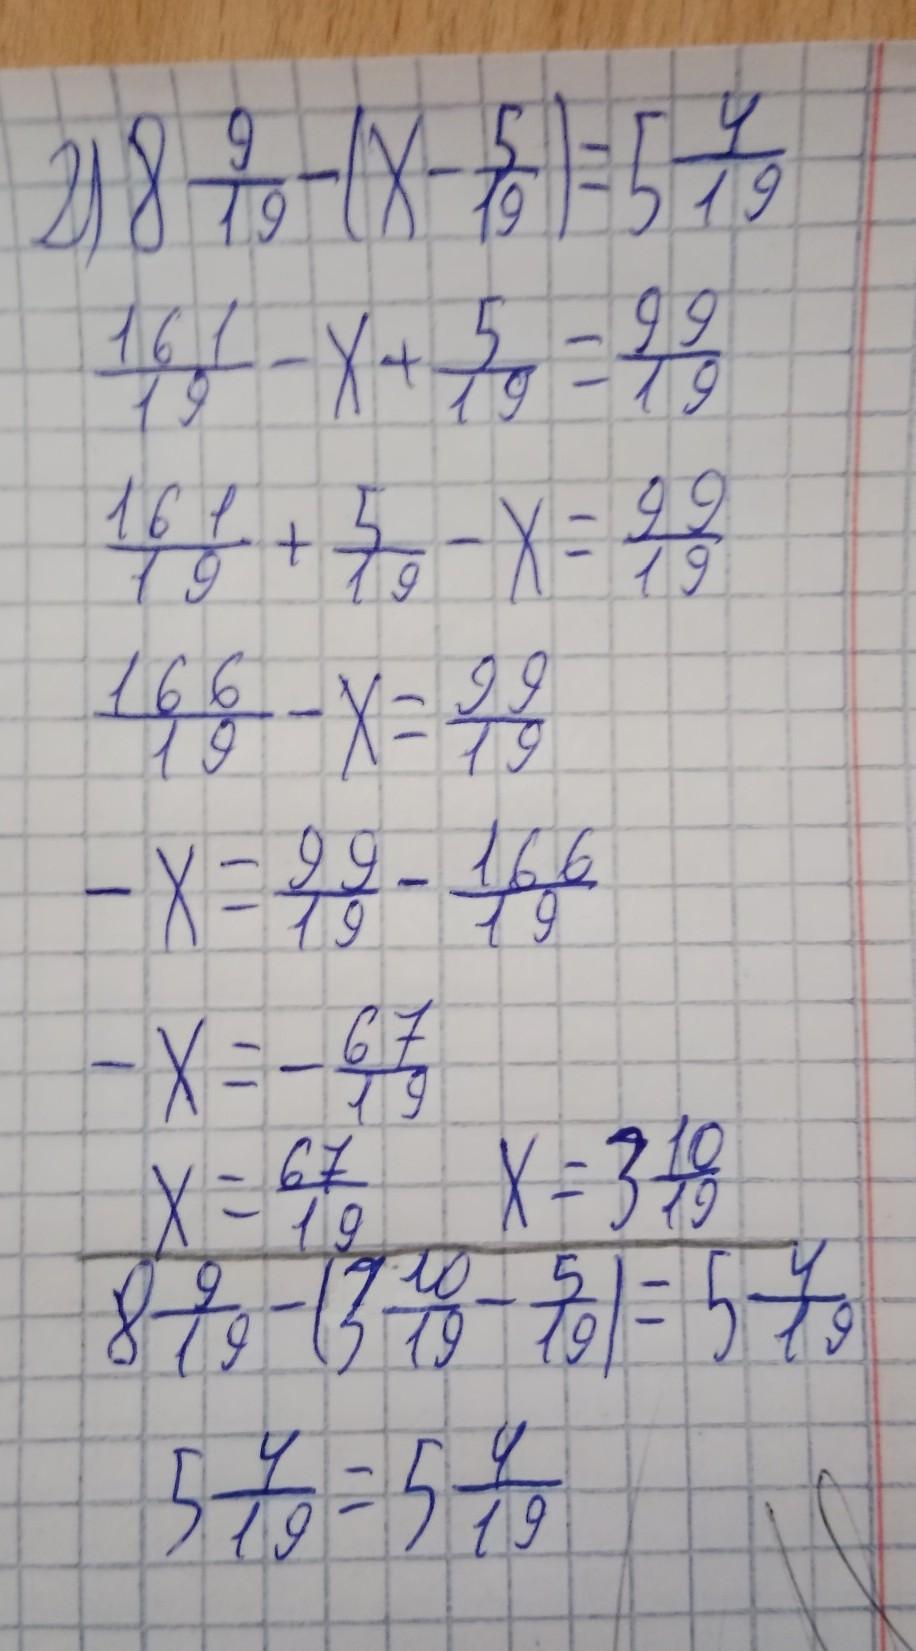 2) 8 9/19 - (x - 5/19) = 5 4/19
161/19 - x + 5/19 = 99/19
161/19 + 5/19 - x = 99/19
166/19 - x = 99/19
- x = 99/19 - 166/19
- x = - 67/19
x = 67/19 x = 3 10/19
8 9/19 - (3 10/19 - 5/19) = 5 4/19
5 4/19 = 5 4/19